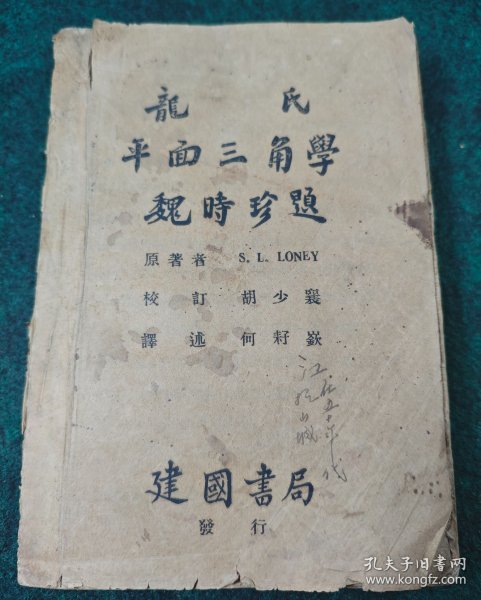 龍 氏
平面三角學
魏時珍題
原著者 S. L. LONEY
校訂 胡少襄
譯述 何籽嶔
江
在五十年代
山城
建國書局
發行
孔夫子旧书网
www.kongfz.com